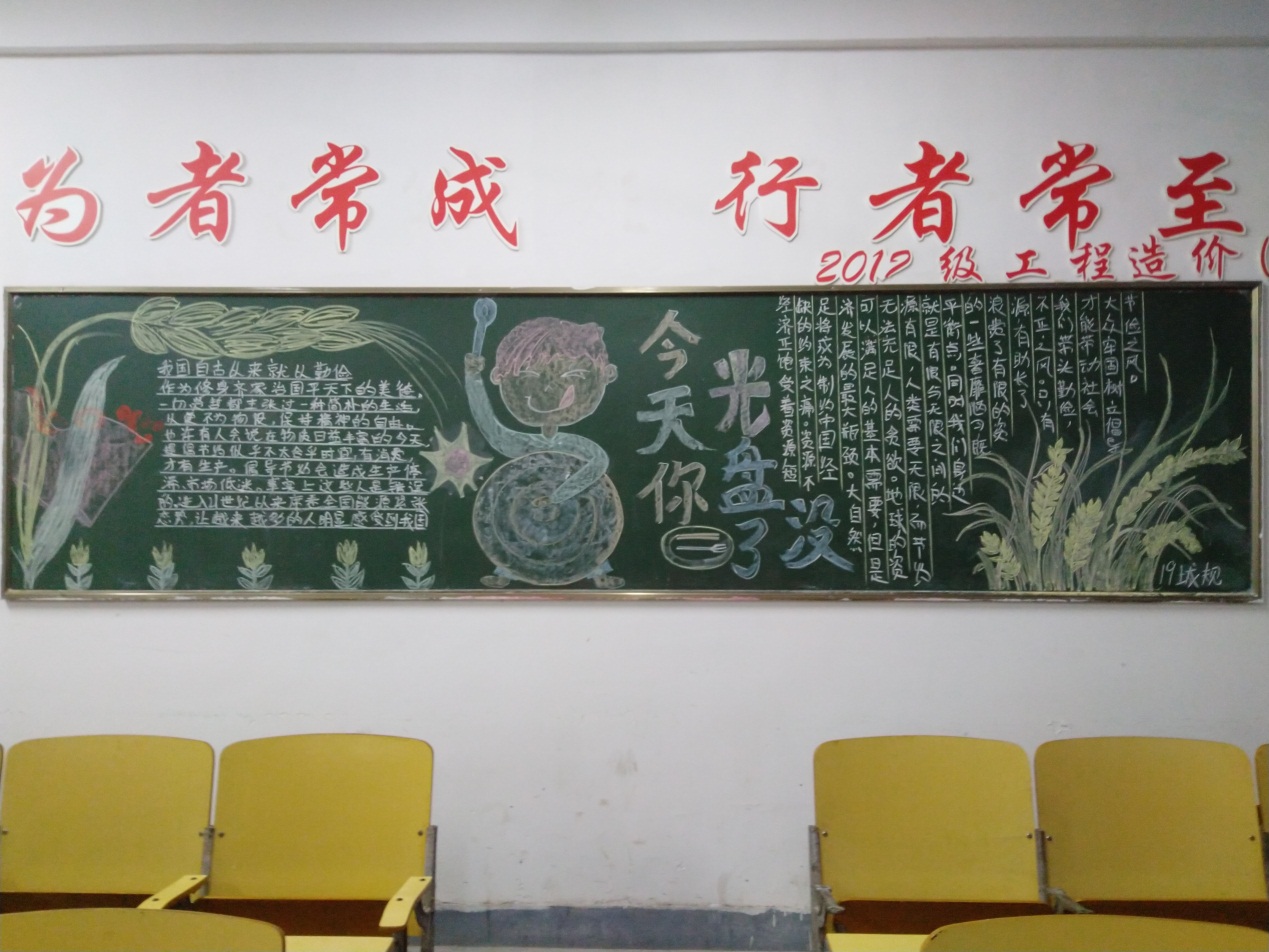 为者常成 行者常至
2019级工程造价(
我国自古以来就以勤俭
作为修身齐家治国平天下的美德,
一切 都主张过一种简朴的生活,
以更不为物役,保持精神的自由。
也许有人会说在物质日益丰富的今天,
提倡节约似乎不太合乎时宜,有消费
才有生产。倡导节约会造成生产停
滞,市场低迷。事实上这些人是错误
的,进入21世纪以来采老全国能源紧张
态势,让越来越多的人明显感受到我国
今天你
光盘了
没
节俭之风。
大众牢固树立倡
才能带动社会
我们带头勤俭,
不正之风。只有
源有助长了
浪费了有限的资
的一些奢靡陋习既
平衡点。同时我们身边
就是有限与无限之间的
源有限,人类需要无限,而节约
无法充足人的贪欲。地球的资
可以满足人的基本需要,但是
济发展的最大瓶颈。大自然
足将成为制约中国经
缺的约束之痛。资源不
经济正饱受着资源短
19城规